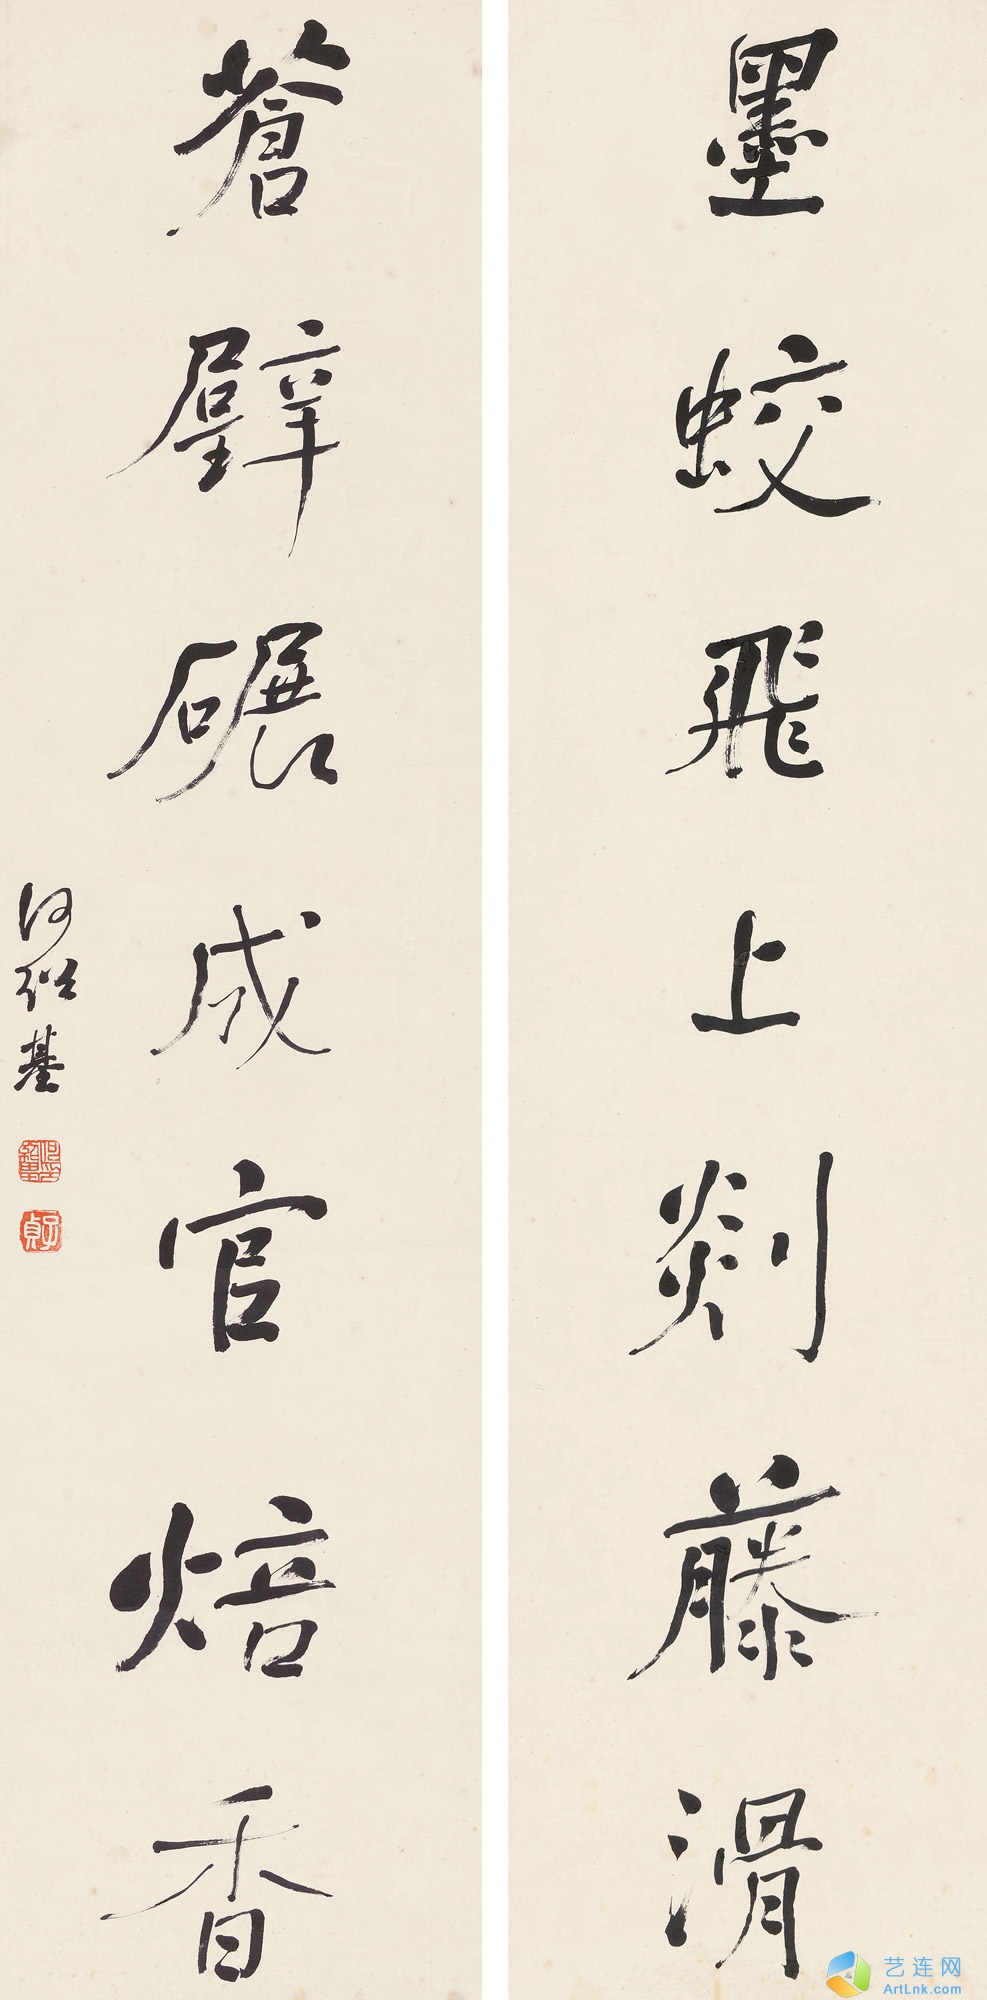 墨蛟飛上剡藤滑
蒼璧碾成官焙香
何紹基
子貞
艺连网
ArtLnk.com